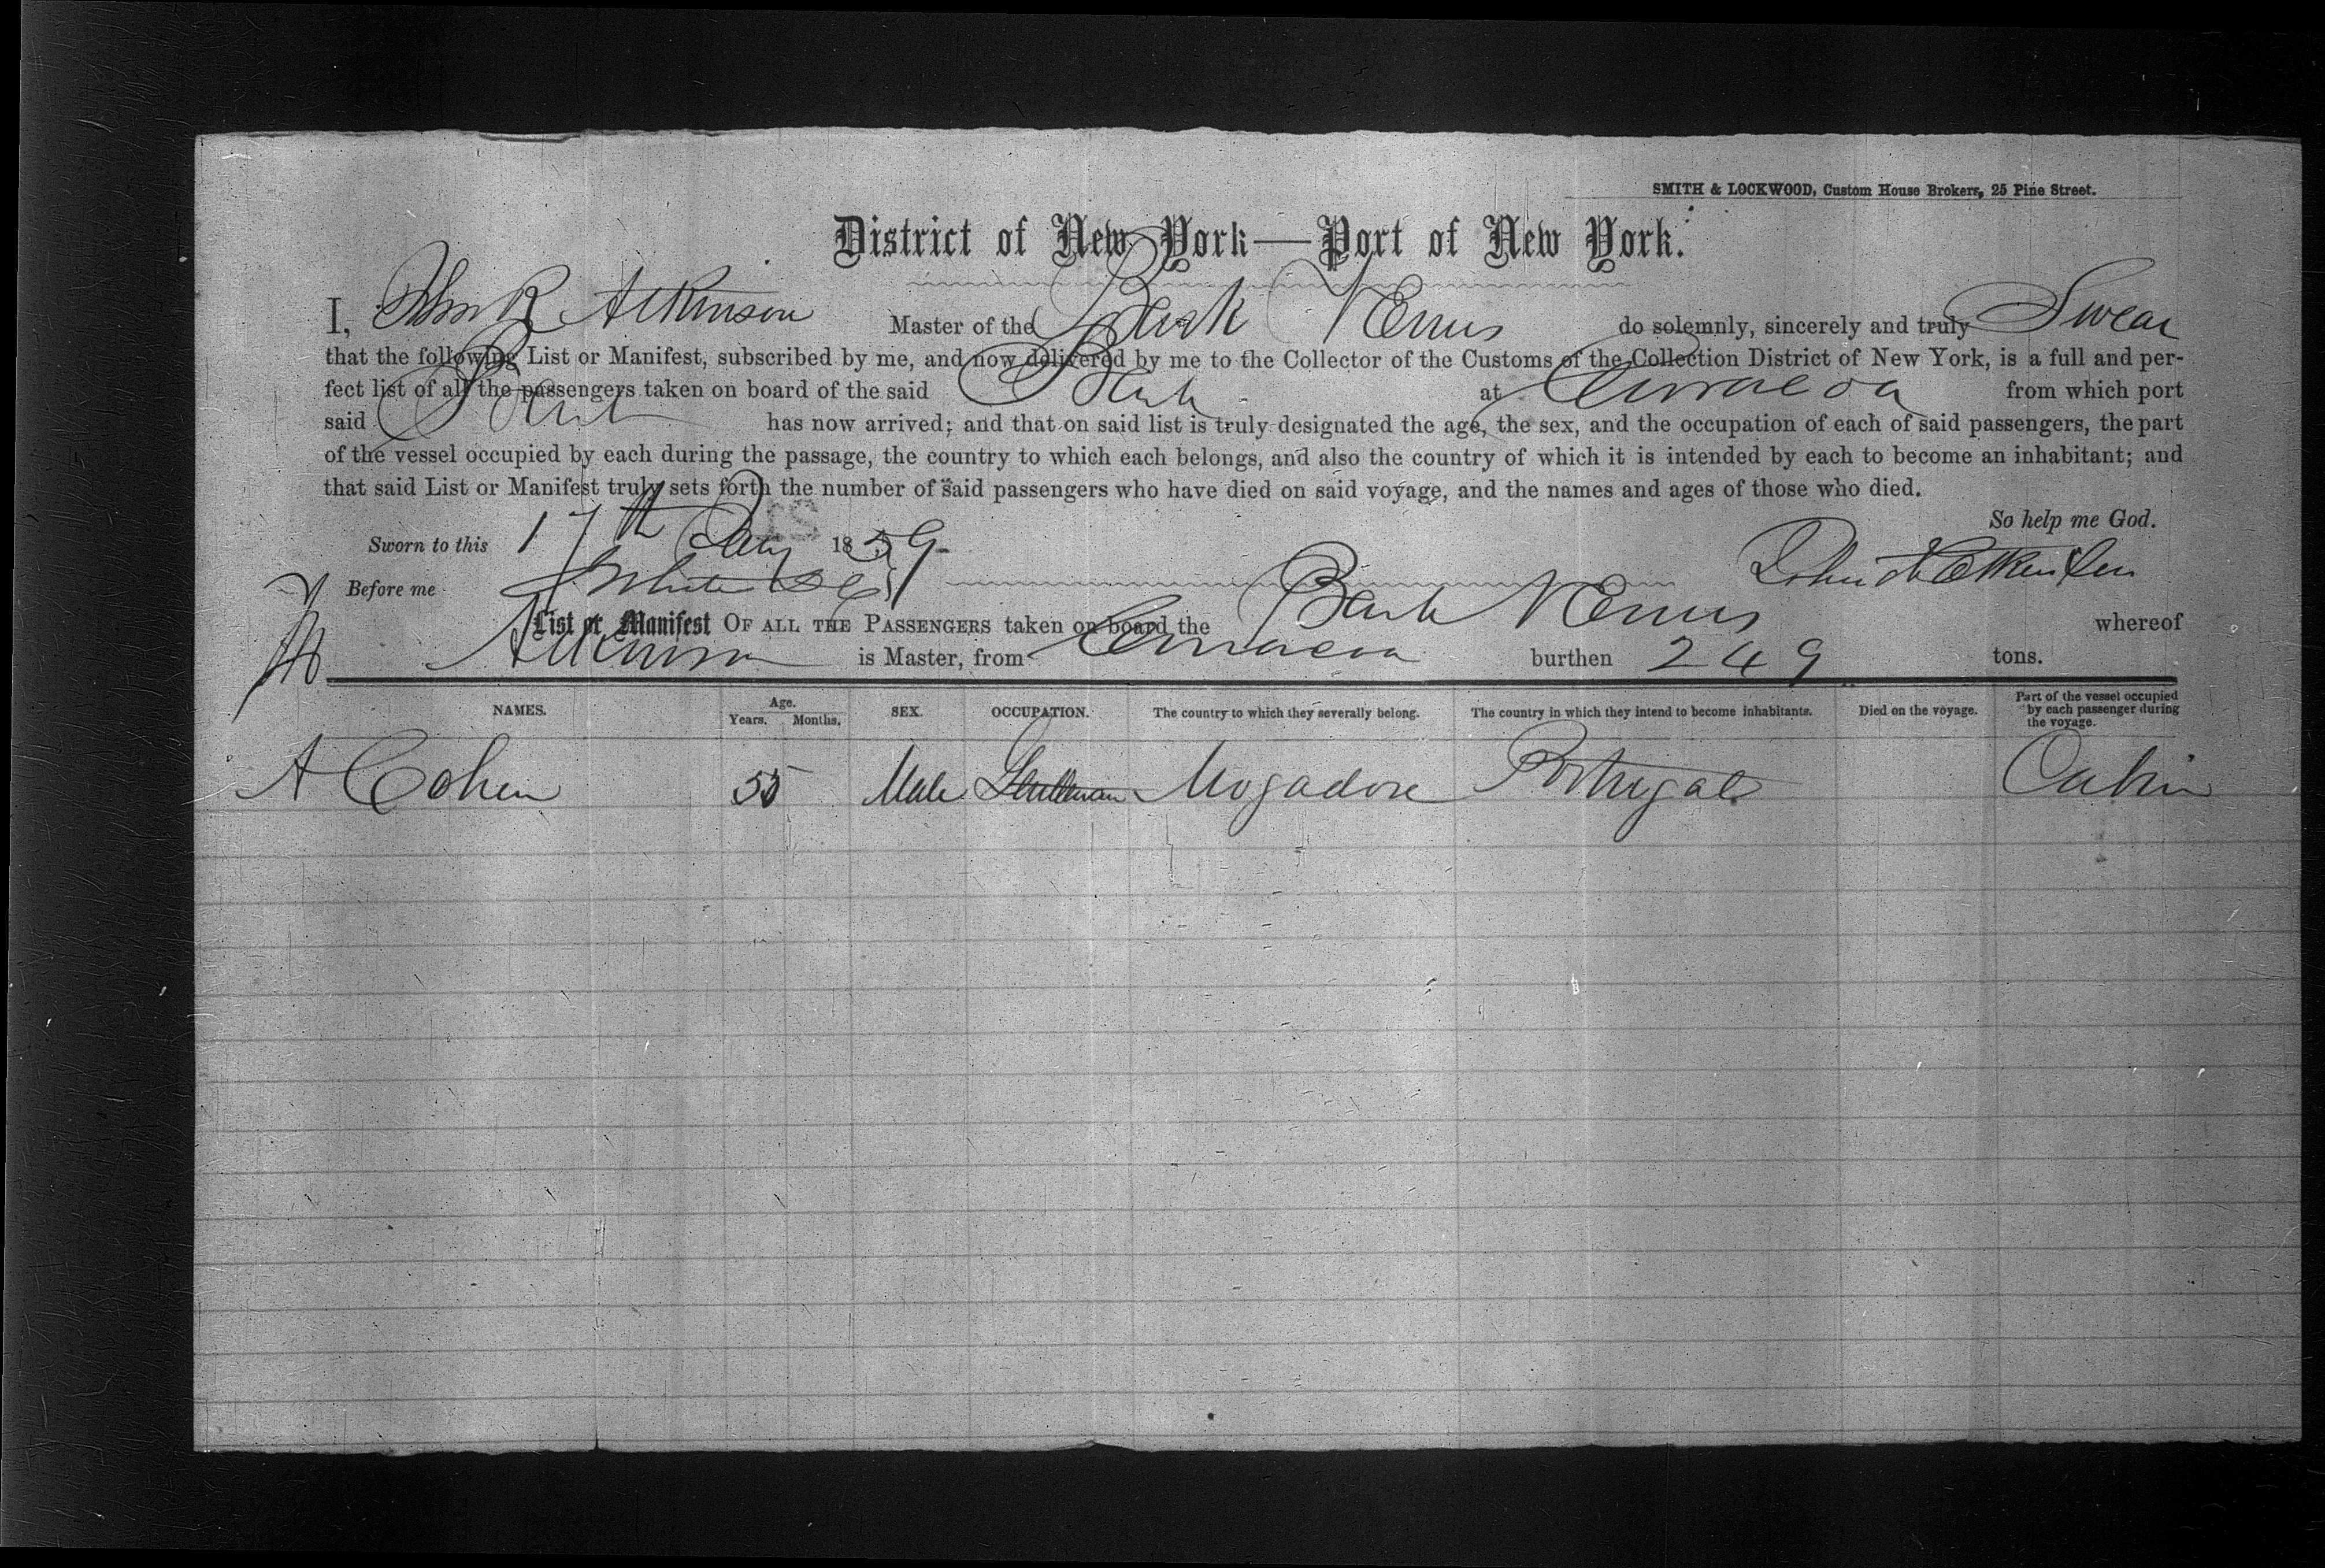 SMITH & LOCKWOOD, Custom House Brokers, 25 Pine Street.
District of New York—Port of New York.
I, John R Atkinson Master of the Bark Venus do solemnly, sincerely and truly Swear
that the following List or Manifest, subscribed by me, and now delivered by me to the Collector of the Customs of the Collection District of New York, is a full and per-
fect list of all the passengers taken on board of the said Bark at Curracoa from which port
said Bark has now arrived; and that on said list is truly designated the age, the sex, and the occupation of each of said passengers, the part
of the vessel occupied by each during the passage, the country to which each belongs, and also the country of which it is intended by each to become an inhabitant; and
that said List or Manifest truly sets forth the number of said passengers who have died on said voyage, and the names and ages of those who died.
So help me God.
Sworn to this 17th 1859
Before me John R Atkinson
List or Manifest OF ALL THE PASSENGERS taken on board the Bark Venus whereof
Atkinson is Master, from Curracoa burthen 249 tons.
NAMES. Age. Years. Months. SEX. OCCUPATION. The country to which they severally belong. The country in which they intend to become inhabitants. Died on the voyage. Part of the vessel occupied by each passenger during the voyage.
A Cohen 55 Male Gentleman Mogadore Portugal Cabin